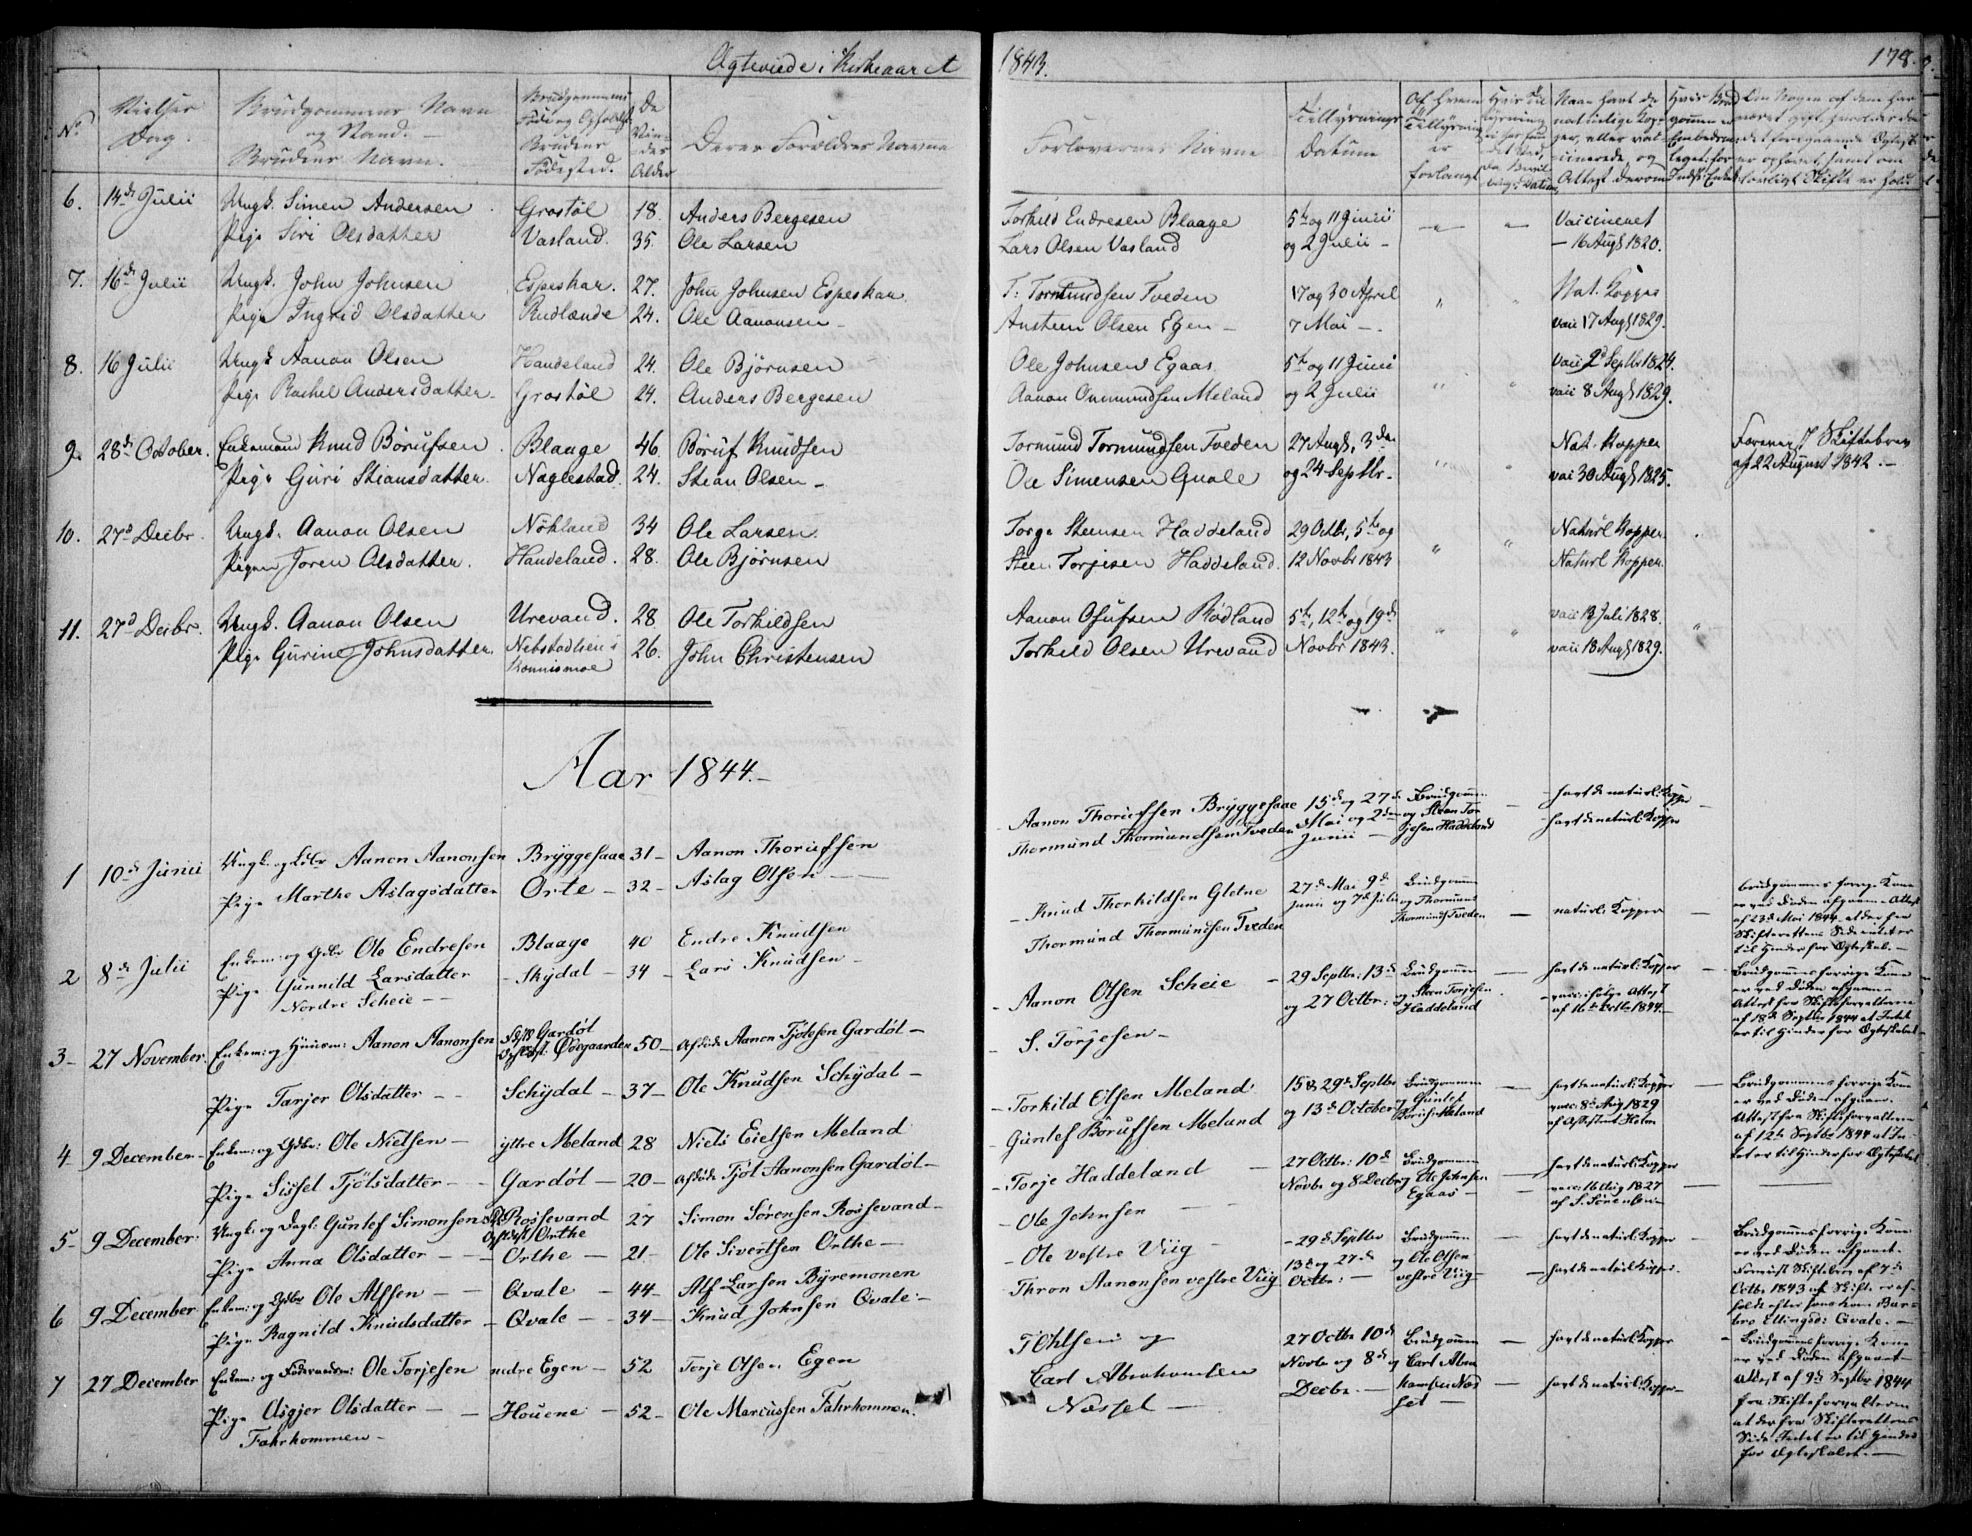 Ægteviede i Kirkeaaret 1843.
178.
No
Vielses Dag.
Brudgommens Navn og Stand. Brudens Navn.
Brudgommens Fødested Brudens Fødested.
De Vi des Alder
Deres Forældres Navne
Forlovernes Navne
Tillysnings Datum
Af hvem Tillysning er forlangt
6. 14de Julii Ungk. Simen Andersen Grostøl 18. Anders Bergesen Torkild Endresen Blaage 5te og 11 Junii Vaccineret
Pige Siri Olsdatter Vasland. 35. Ole Larsen Lars Olsen Vasland og 2 Julii – – 16 Aug 1820.
7. 16de Julii Ungk. John Johnsen Espeskar. 27. John Johnsen Espeskar. T: Tormundsen Tveden 17 og 30 April Nat. Kopper
Pige Ingrid Olsdatter Rudlænde 24. Ole Aanonsen – Austeen Olsen Egen – 7 Mai –. vac 17 Aug 1829.
8. 16 Julii Ungk. Aanon Olsen Handeland 24. Ole Bjørnsen Ole Johnsen Egaas 5te og 11 Junii vac 2d Septbr 1824.
Pige Rachel Andersdatter. Grostøl 24. Anders Bergesen Aanon Ommundsen Meland og 2 Julii vac 8 Aug 1829.
9. 28de October. Enkemand Knud Børufsen. Blaage 46. Børuf Knudsen Tormund Tormundsen Tveden 27 Aug, 3die Nat. Kopper Skiftebrev
Pige Guri Stiansdatter. Naglestad. 24. Stian Olsen – Ole Simensen Quale og 24 Septbr. vac 30 Aug 1825. af 22 August 1842. –
10. 27d Decbr. Ungk. Aanon Olsen Nökland 34 Ole Larsen. Torge Steensen Haddeland 29 Octbr, 5te og Naturl Kopper.
Pigen Joren Olsdatter. Handeland. 28. Ole Bjørnsen Steen Torgisen Haddeland. 12 Novbr 1843 Naturl Kopper.
11. 27d Decbr. Ungk. Aanon Olsen Urevand. 28 Ole Torkildsen Aanon Osufsen Rödland 5te, 12te og 19de vac 13 Juli 1828.
Pige Gurine Johnsdatter. Nebstadlien i Konnismoe 26. John Christensen Torkild Olsen Urevand Novbr 1843. vac 18 Aug 1829.
Aar 1844. –
1 10de Junii Ungk. og Aanon Aanonsen Bryggesaae 31 – Aanon Thorufsen – Aanon Thorufsen Bryggesaae 15de og 27de Mai og 2den Junii – Brudgommen og Steen Torjesen Haddeland – havt de naturl: Kopper
Pige Marthe Aslagsdatter Orte – 32 – Aslag Olsen – Thormund Thormundsen Tveden – havt de naturl: Kopper
2 8de Julii Enkem: og Gdbr Ole Endresen Blaage 40 Endre Knudsen – Knud Thorkildsen Gletne 27de Mai 9de Junii og 7de Julii Brudgommen og Thormund Thormunds Tveden – naturl: Kopper – Brudgommens forrige Kone er ved Døden afgaaen – Attest af 23de Mai 1844 at der fra Skifterettens Side intet er til Hinder for Ægteskab. –
Pige Gunnild Larsdatter Nordre Scheie – – – Skydal – 34 – Lars Knudsen – Thormund Thormundsen Tveden
3 – 27 November. Enkem: og Huusm: Aanon Aanonsen Fdst: Gardøl Opholdst: Ødegaarden 50 – Afdøde Aanon Tjølsen Gardøl – – Aanon Olsen Scheie – 29 Septbr: 13de og 27 Octbr: Brudgommen og Steen Torjesen Haddeland – havt de naturl: Kopper – Brudgommens forrige Kone er ved Døden afgaaen – Attest fra Skifteforvalteren af 18de Septbr 1844 at Intet er til Hinder for Ægteskabet –
Pige Tarjer Olsdatter – – Schydal – 37 – Ole Knudsen Schydal – – S. Torjesen – – vacc: ifølge Attest af 16de Octbr 1844 –
4 9 December – Enkem: og Gdbr: Ole Nielsen – yttre Meland 28 Niels Eielsen Meland – Torkild Eilsen Meland 15de 29de Septbr og 13de October Brudgommen og Guntef Borufs: Meland – havt de naturl: Kopper – Brudgommens forrige Kone er ved Døden afgaaen. Attest fra Skifteforvalteren af 12te Septbr 1844 at Intet er til Hinder for Ægteskabet
Pige Sissel Tjølsdatter – – Gardøl – 20 – Afdøde Tjøl Aanonsen Gardøl – – Guntef Børufsen Meland vacc: 8de Aug 1829 af Assistent Holm
5 – 9 December: Ungk: og Guntef Simonsen Fdst Rossevand Opholdst: Orthe 27 Simon Sørensen Rossevand – – Torje Haddeland – 27 Octbr: 10de Novbr og 8 Decbr Brudgommen og Ole Johnsen Egaas – havt de naturl: Kopper
Pige Anna Olsdatter – – Orthe – 21 – Ole Sivertsen Orthe – – Ole Johnsen – vacc: 16 Aug 1827 af S. Sørensen –
6 9 December Enkem: og Gdbr Ole Alfsen – – Qvale – 44 – Alf Larsen Byremonen – Ole vestre Viig – 29de Septbr 13de og 27de Octbr: – Brudgommen og Ole Olsen vestre Viig – havt de naturl: Kopper – Brudgommens forrige Kone er ved Døden afgaaet. Skiftebrev af 7de Octbr 1843 at Skifte er afholdt efter hans Kone Barbro Ellingsd: Qvale. –
Pige Ragnild Knudsdatter – Qvale – 34 – Knud Johnsen Qvale. – Thron Aanonsen vestre Viig – havt de naturl: Kopper –
7 27 December Enkem: og Ole Torjesen nedre Egen – 52 Torje Olsen Egen T Ohlsen og 27 Octbr 10de Novbr og 8de Decbr. – Brudgommen og Carl Abrahamsen Næsset – havt de naturl: Kopper – Brudgommens forrige Kone er ved Døden afgaaet – Attest af 9de Septbr 1844 fra Skifteforvalteren at der fra Skifterettens Side Intet er til Hinder for Ægteskabet. –
Pige Asgjer Olsdatter – – Fahrkommen – Houene – 52 – Ole Marcussen Fahrkommen. Carl Abrahamsen Næsset – – havt de naturl: Kopper –